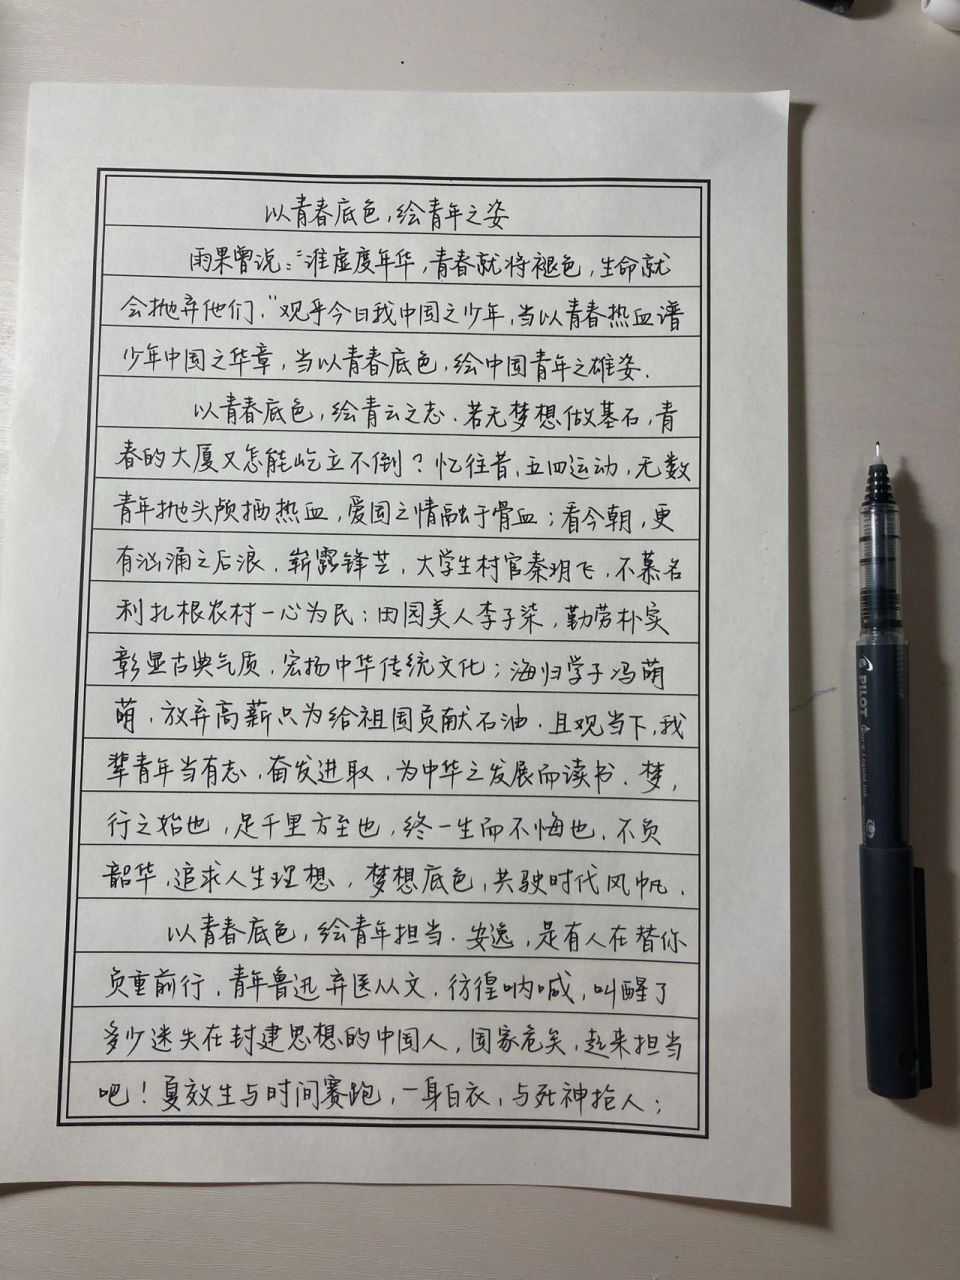 以青春底色,绘青年之姿
雨果曾说:“谁虚度年华,青春就将褪色,生命就
会抛弃他们.”观乎今日我中国之少年,当以青春热血谱
少年中国之华章,当以青春底色,绘中国青年之雄姿.
以青春底色,绘青云之志.若无梦想做基石,青
春的大厦又怎能屹立不倒?忆往昔,五四运动,无数
青年抛头颅洒热血,爱国之情融于骨血;看今朝,更
有汹涌之后浪,崭露锋芒,大学生村官秦玥飞,不慕名
利扎根农村一心为民;田园美人李子柒,勤劳朴实
彰显古典气质,宏扬中华传统文化;海归学子冯萌
萌,放弃高薪只为给祖国贡献石油.且观当下,我
辈青年当有志,奋发进取,为中华之发展而读书.梦,
行之始也,足千里方至也,终一生而不悔也.不负
韶华,追求人生理想,梦想底色,共驶时代风帆.
以青春底色,绘青年担当.安逸,是有人在替你
负重前行,青年鲁迅弃医从文,彷徨呐喊,叫醒了
多少迷失在封建思想的中国人,国家危矣,起来担当
吧!夏效生与时间赛跑,一身白衣,与死神抢人;
PILOT